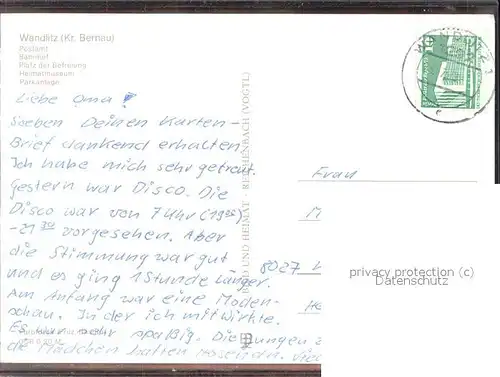 Wandlitz (Kr. Bernau)
Postamt
Bahnhof
Platz der Befreiung
Heimatmuseum
Parkanlage
Liebe Oma!
Soeben Deinen Karten-
Brief dankend erhalten.
Ich habe mich sehr gefreut.
Gestern war Disco. Die
Disco war von 7 Uhr (19
-21 30 vorgesehen. Aber
die Stimmung war gut
und es ging 1 Stunde länger.
Am Anfang war eine Moden-
schau. In der ich mitwirkte.
Es war sehr spaßig. Die Jungen
die Mädchen hatten
BILD UND HEIMAT · REICHENBACH (VOGTL)
10
Frau
M
8027
He
privacy protection (c)
Datenschutz